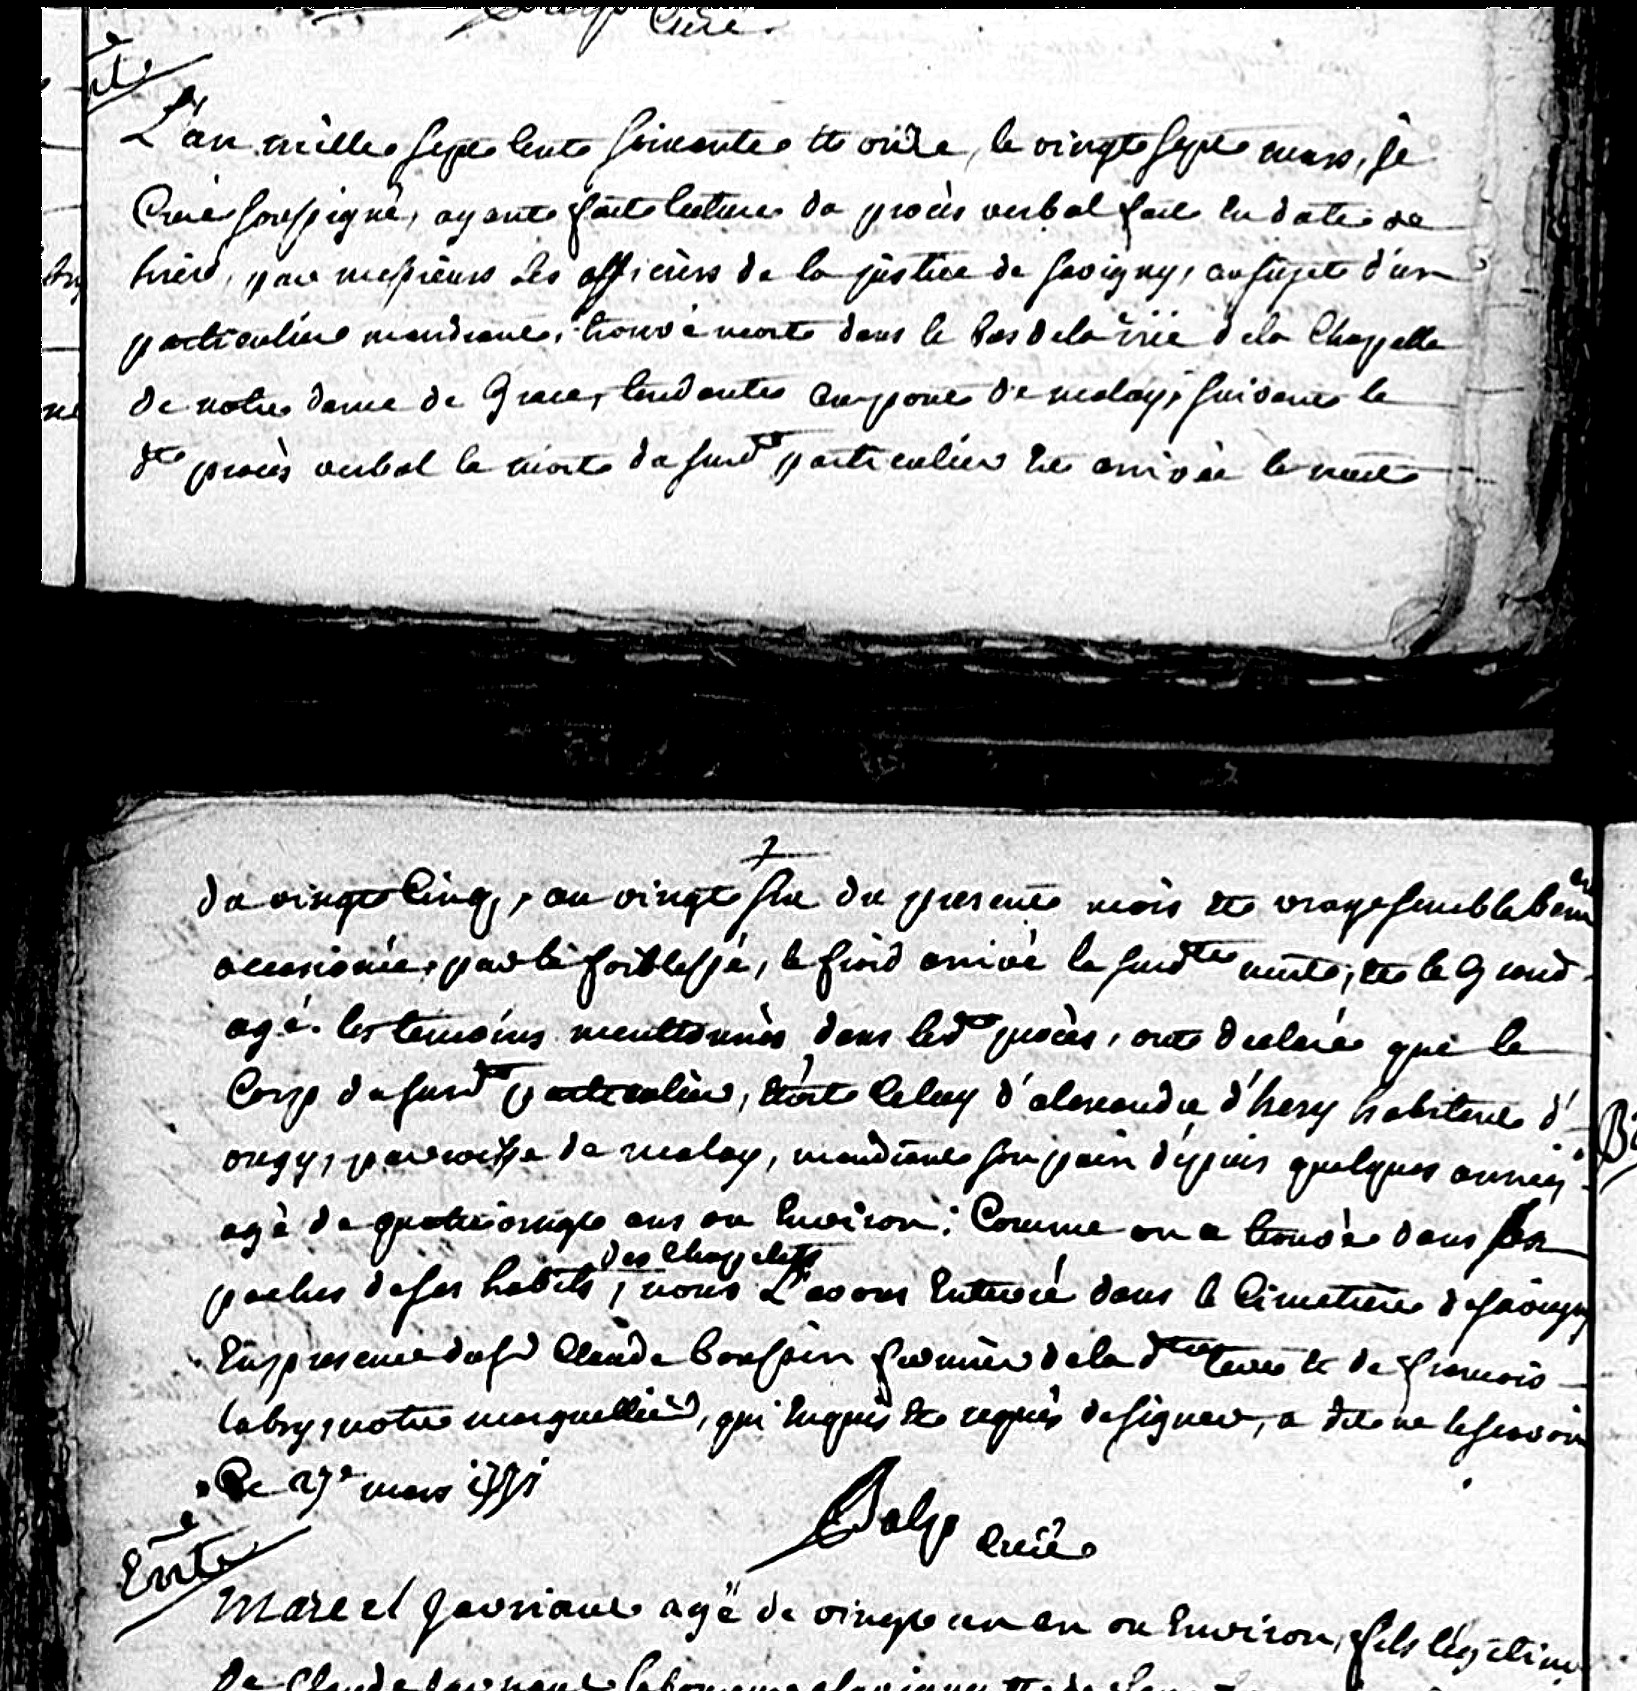 Curé.
L'an mille sept cent soixante et onze, le vingt sept mars, je
Curé soussigné, ayant fait lecture du procès verbal fait en date de
hier, par messieurs les officiers de la justice de Savigny, au sujet d'un
particulier mendiant, trouvé mort dans le bas de la rüe de la Chappelle
de notre dame de Grace, tendante au pont de malay, suivant le
dt procès verbal la mort du susdt particulier est arrivée la nuit
du vingt cinq, au vingt six du present mois et vraysemblablem
occasionée, par la foiblesse, le froid arrivé la susdte nuit, et le Grand
agé. les temoins mentionnés dans ledt procès, ont declaré que le
Corp du susdt particulier, étoit celuy d'alexandre d'hery habitant d'
ougy, parroisse de malay, mandiant son pain dépuis quelques années
agé de quatrevingt ans ou Environ; Comme on a trouvé dans les
des Chappelets
poches de ses habits, nous L'avons Enterré dans le Cimetiere de Savigny
En presence du sr Claude fermier de la dte terre et de francois
labry, notre marguellier, qui Enquis et requis de signer, a dit ne le scavoir
Ce 27e mars 1771
Curé
Ente
Mare el agé de vingt un an ou Environ, fils légitime
De Claude